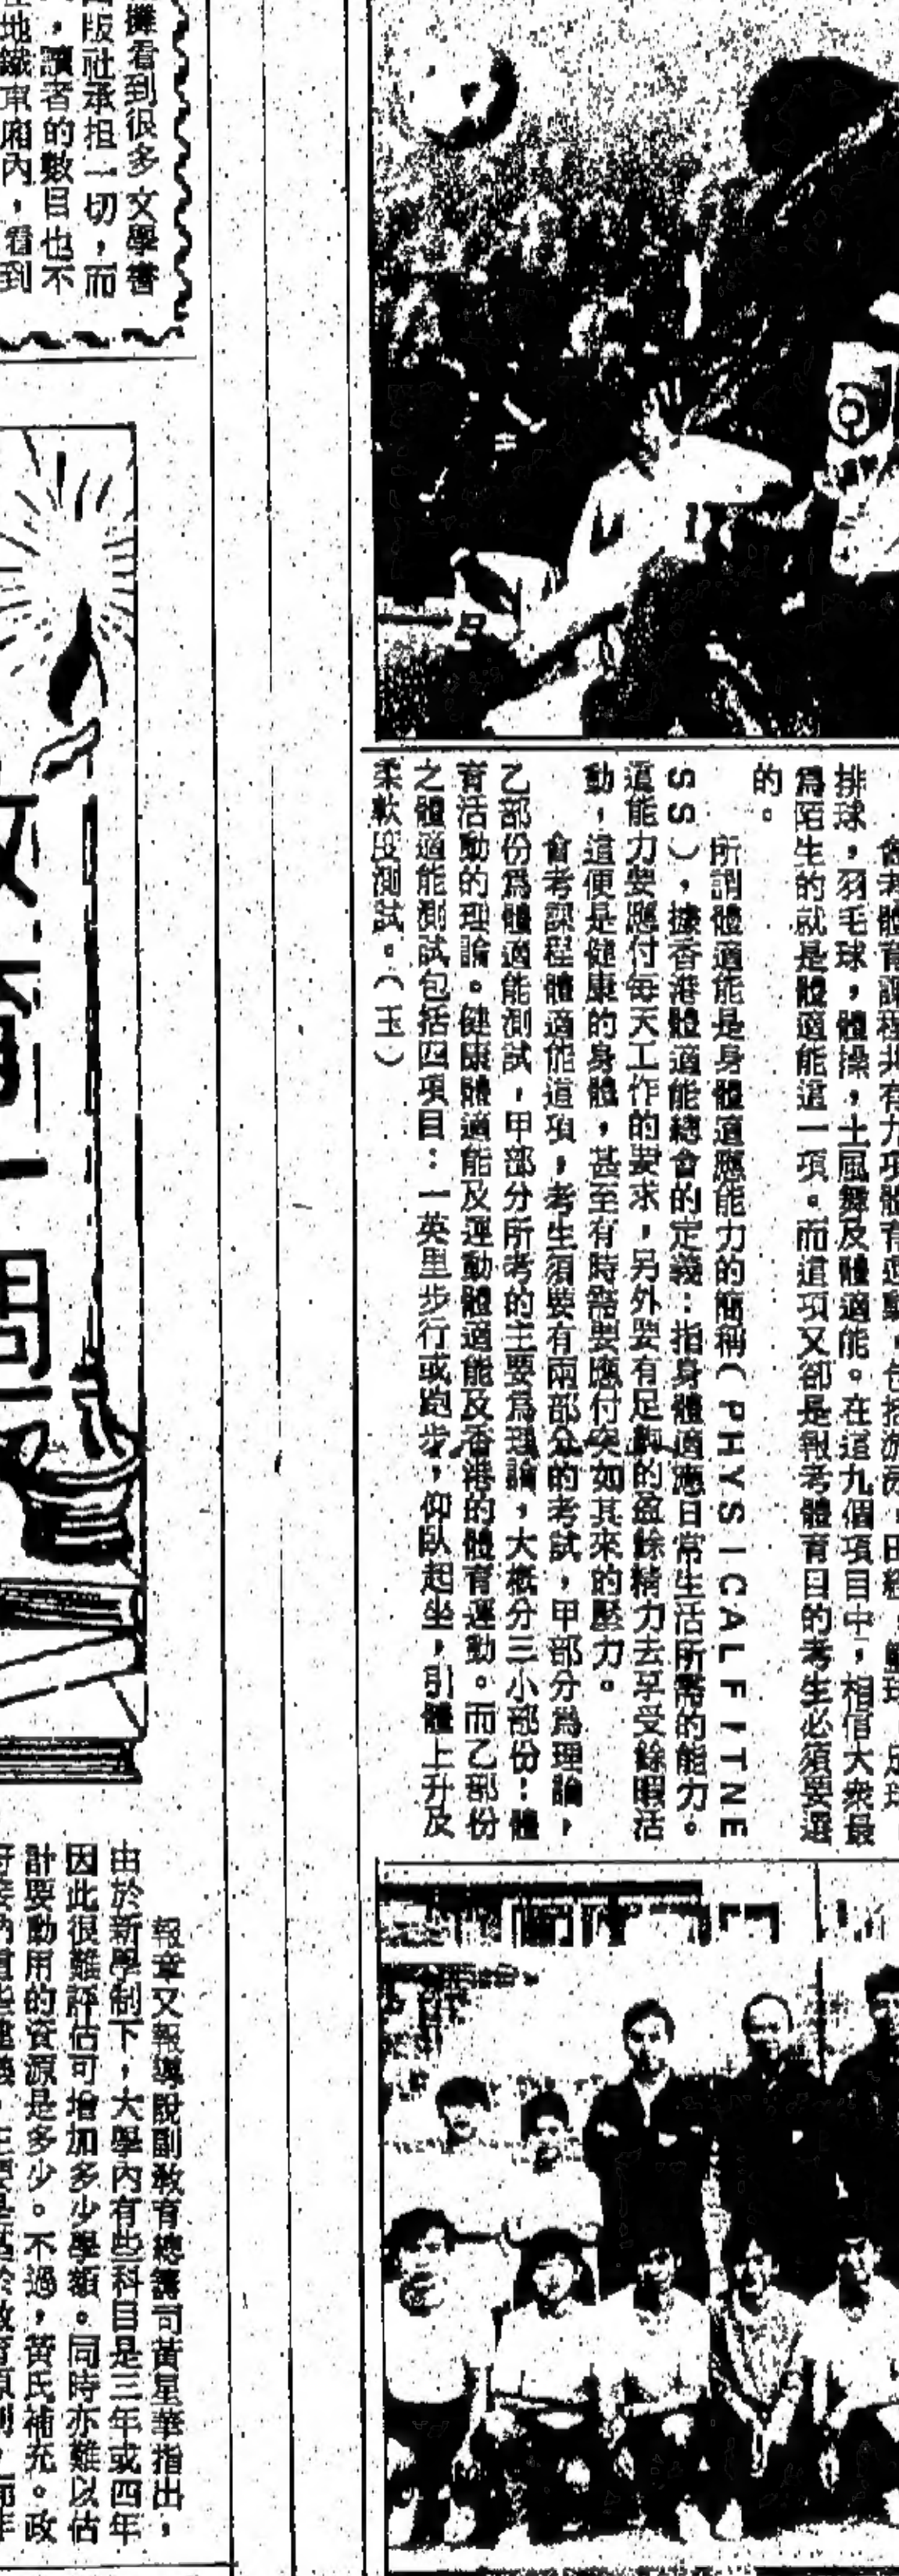 會考體育課程共有九項體育運動，包括游泳，田徑，籃球，足球，
排球，羽毛球，體操，土風舞及體適能。在這九個項目中，相信大衆最
爲陌生的就是體適能這一項。而這項又卻是報考體育目的考生必須要選
的。
所謂體適能是身體適應能力的簡稱（PHYSICALFITNE
SS），據香港體適能總會的定義：指身體適應日常生活所需的能力。
這能力要應付每天工作的要求，另外要有足夠的盈餘精力去享受餘暇活
動，這便是健康的身體，甚至有時需要應付突如其來的壓力。
會考課程體適能這項，考生須要有兩部分的考試，甲部分爲理論，
乙部份爲體適能測試，甲部分所考的主要爲理論，大概分三小部份：體
育活動的理論。健康體適能及運動體適能及香港的體育運動。而乙部份
之體適能測試包括四項目：一英里步行或跑步，仰臥起坐，引體上升及
柔軟度測試。（玉）
攤看到很多文學書
版社承担一切，而
，讀者的數目也不
地鐵車廂內，看到
一周
報章又報導說副教育總籌司黃星華指出，
由於新學制下，大學內有些科目是三年或四年
因此很難評估可增加多少學額。同時亦難以估
計要動用的資源是多少。不過，黃氏補充。政